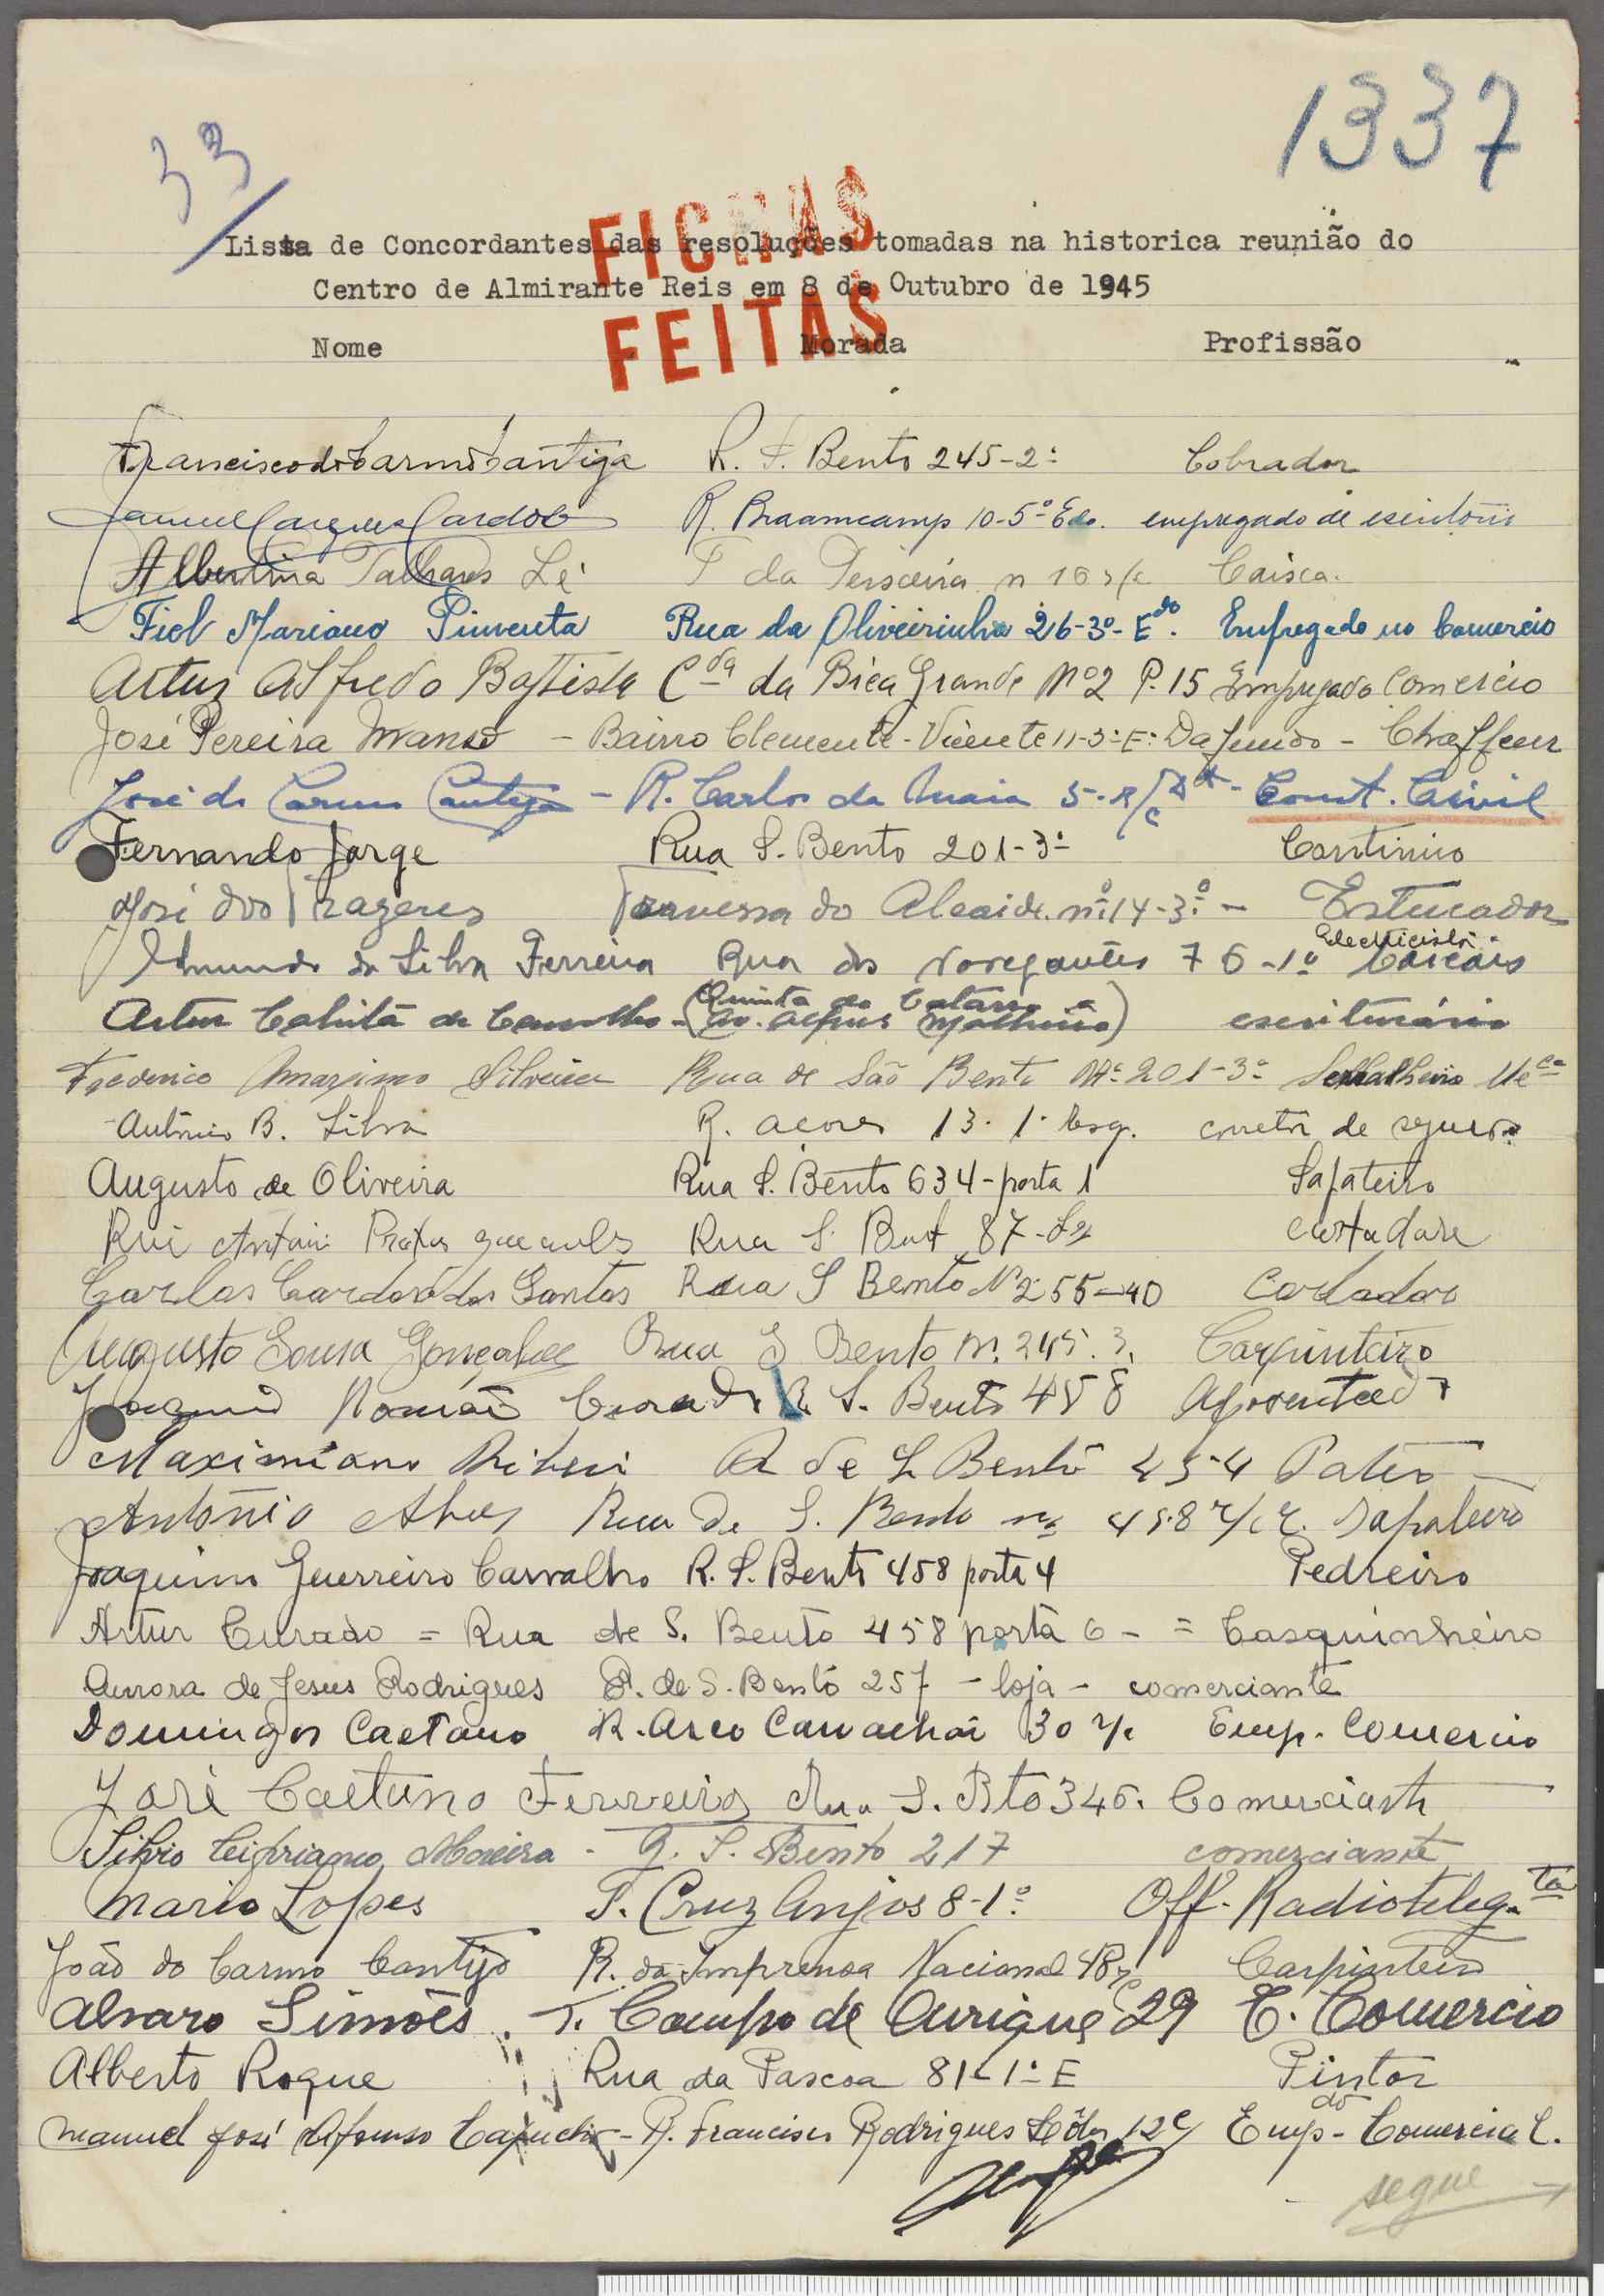 1337
33
FICHAS
FEITAS
Lista de Concordantes das resoluções tomadas na historica reunião do
Centro de Almirante Reis em 8 de Outubro de 1945
Nome Morada Profissão
Francisco do Carmo Cantiga R. S. Bento 245-2º Cobrador
Cardoso R. Braamcamp 10-5º Edo. empregado de escritorio
Albertina Talhares Lé T da Peixeira n 16 r/c Caixa.
Fiel Mariano Pimenta Rua da Oliveirinha 26-3º-Edo. Empregado no Comercio
Artur Alfredo Baptista Cda da Bica Grande Nº2 P.15 Empregado Comercio
José Pereira Manso - Bairro Clemente-Vicente 11-3º-Eº Dafundo - Chaffeur
José do Carmo Cantiga - R. Carlos da Maia 5-R/c Dt - Const. Civil
Fernando Jorge Rua S. Bento 201-3º Continuo
José dos Prazeres Travessa do Alcaide nº 14-3º - Estucador
Edmundo da Silva Ferreira Rua dos Navegantes 76-1º Cascais Electricista
Artur de Carvalho - (Quinta do Catarro a Av. ) escriturário
Frederico Maximo Silveira Rua de São Bento Nº 201-3º Serralheiro Meco
António B. Silva R. Açores 13. 1º Esq. corretor de seguros
Augusto de Oliveira Rua S. Bento 634-porta 1 Sapateiro
Rui Antoni Pratas Rua S. Bent 87- cortador
Carlos Cardoso dos Santos Rua S Bento Nº 255-40 Cortador
Augusto Sousa Gonçalves Rua S Bento Nº 245.3. Carpinteiro
Joaquim Romão Curado R. S. Bento 458 Aposentado
Maximiano Ribeiro R de S. Bento 454 Pateo
António Alves Rua de S. Bento nº 458 r/c Sapateiro
Joaquim Guerreiro Carvalho R. S. Bento 458 porta 4 Pedreiro
Artur Curado = Rua de S. Bento 458 porta 6 - = Casquinheiro
Aurora de Jesus Rodrigues R. de S. Bento 257 - loja - comerciante
Domingos Caetano R. Arco Carvalhão 30 r/c Emp. Comercio
José Caetano Ferreira Rua S. Bto 346. Comerciante
Silvio Cipriano Moreira - R. S. Bento 217 comerciante
Mario Lopes T. Cruz Anjos 8-1º Off. Radioteleg.ta
João do Carmo Cantijo R. da Imprensa Nacional 48 r/c Carpinteiro
Alvaro Simões. T. Campo de Ourique 29 E. Comercio
Alberto Roque Rua da Pascoa 81-1º E Pintor
Manuel José Afonso Capucho - R. Francisco Rodrigues Lôbo 12 C/ Empdo Comercial.
segue